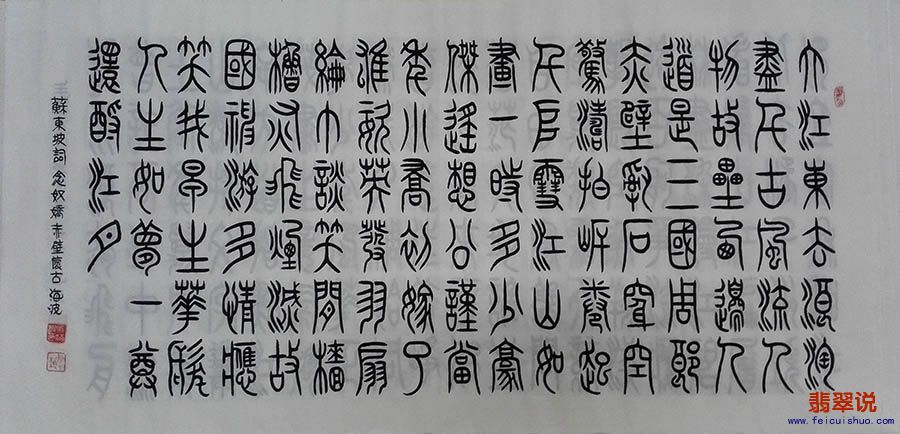 大江東去浪淘
盡千古風流人
物故壘西邊人
道是三國周郎
赤壁亂石穿空
驚濤拍岸卷起
千堆雪江山如
畫一時多少豪
傑遙想公謹當
年小喬初嫁了
雄姿英發羽扇
綸巾談笑間檣
櫓灰飛煙滅故
國神游多情應
笑我早生華髮
人生如夢一尊
還酹江月
蘇東坡詞 念奴嬌 赤壁懷古 海波
翡翠说
www.feicuishuo.com